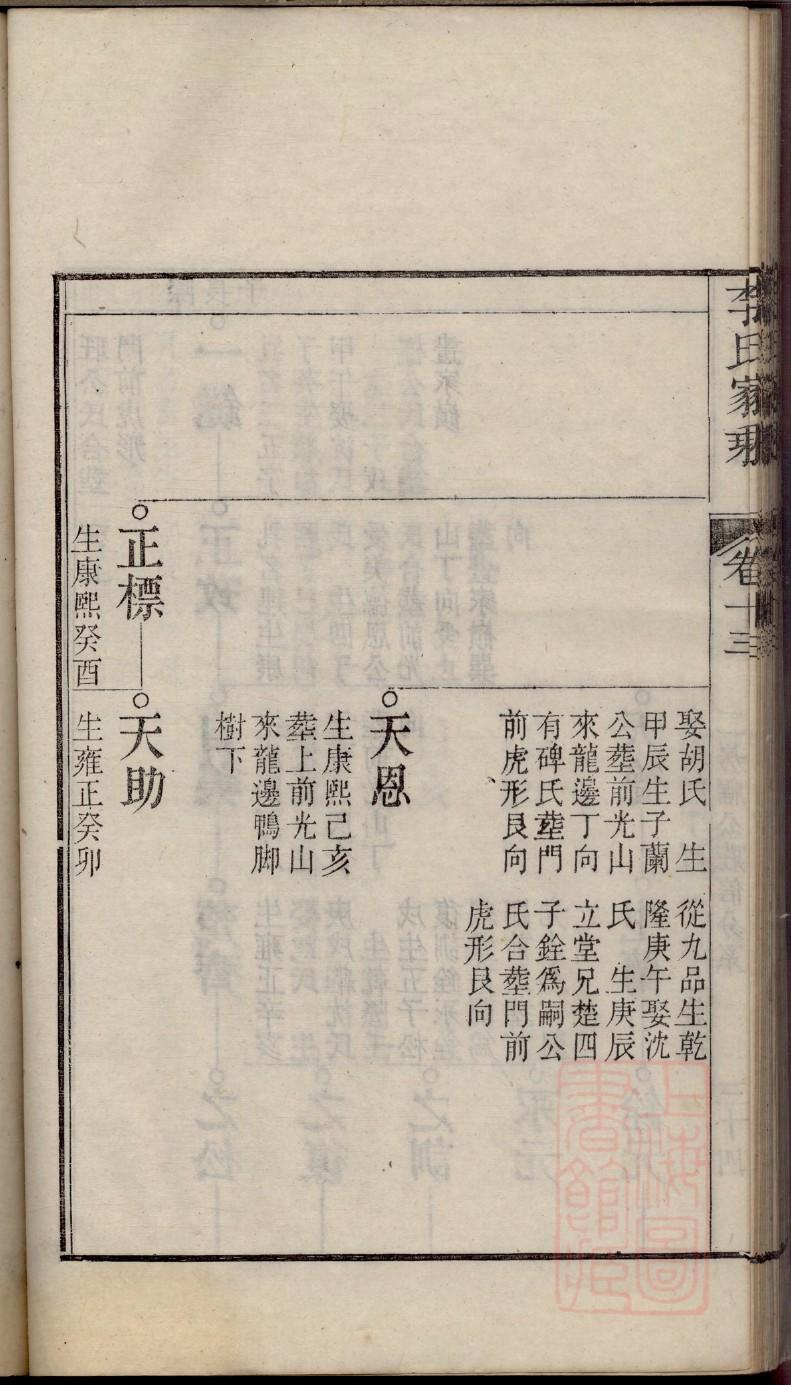 李氏家乘
卷十三
娶胡氏 生
甲辰生子蘭
公塟前光山
來龍邊丁向
有碑氏塟門
前虎形艮向
從九品生乾
隆庚午娶沈
氏 生庚辰
立堂兄楚四
子銓爲嗣公
氏合塟門前
虎形艮向
天恩
生康熙己亥
塟上前光山
來龍邊鴨脚
樹下
正標
生康熙癸酉
天助
生雍正癸卯
上海圖
書館藏